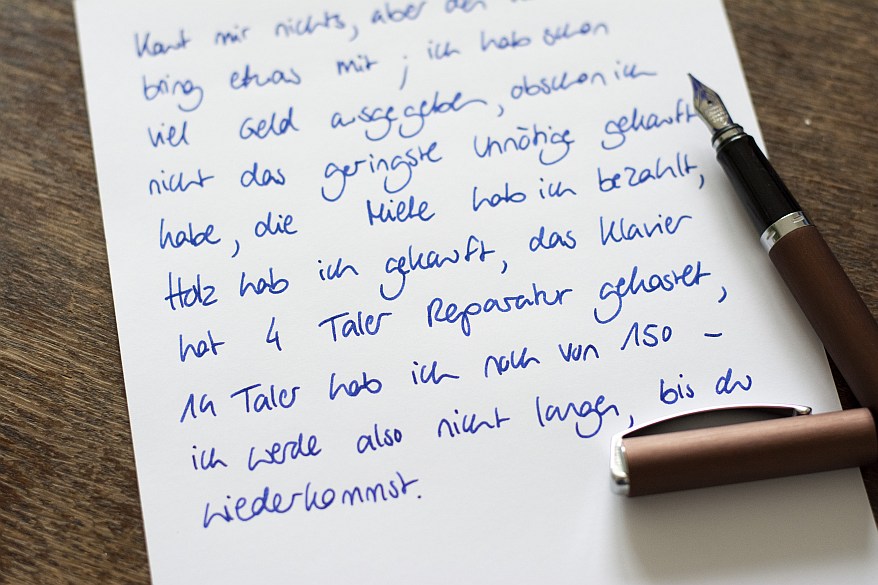 Kauf mir nichts, aber den
bring etwas mit; ich hab schon
viel Geld ausgegeben, obschon ich
nicht das geringste Unnötige gekauft
habe, die Miete hab ich bezahlt,
Holz hab ich gekauft, das Klavier
hat 4 Taler Reparatur gekostet,
14 Taler hab ich noch von 150 –
ich werde also nicht langen, bis du
wiederkommst.